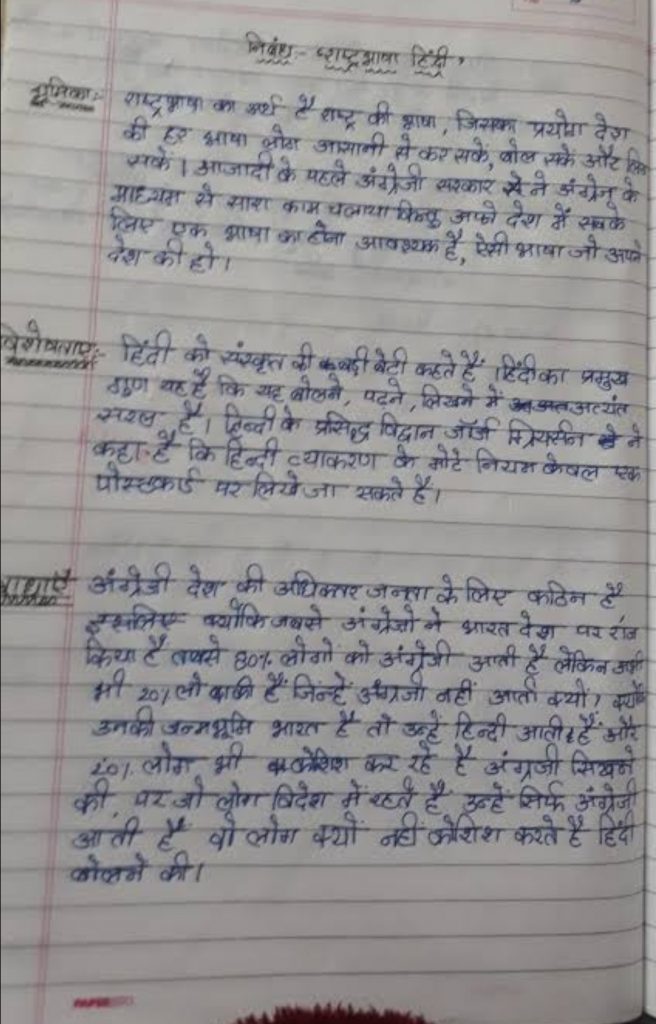 निबंध:- "राष्ट्रभाषा हिंदी"
भूमिका:- राष्ट्रभाषा का अर्थ है राष्ट्र की भाषा, जिसका प्रयोग देश
की हर भाषा लोग आसानी से कर सकें, बोल सकें और लिख
सकें। आजादी के पहले अंग्रेजी सरकार ने अंग्रेजी के
माध्यम से सारा काम चलाया किन्तु अपने देश में सबके
लिए एक भाषा का होना आवश्यक है, ऐसी भाषा जो अपने
देश की हो।
विशेषताएं:- हिंदी को संस्कृत की बड़ी बेटी कहते हैं। हिंदी का प्रमुख
गुण यह है कि यह बोलने, पढने, लिखने में अत्यंत
सरल है। हिन्दी के प्रसिद्ध विद्वान जॉर्ज ग्रियर्सन ने
कहा है कि हिन्दी व्याकरण के मोटे नियम केवल एक
पोस्टकार्ड पर लिखे जा सकते है।
बाधाएँ अंग्रेजी देश की अधिकतर जनता के लिए कठिन है
इसलिए क्योंकि जबसे अंग्रेजो ने भारत देश पर राज
किया है तबसे 80% लोगो को अंग्रेजी आती है लेकिन अभी
भी 20% लो बाकी हैं जिन्हें अंग्रजी नहीं आती क्यों? क्योंकि
उनकी जन्मभूमि भारत है तो उन्हे हिन्दी आती है और
20% लोग भी कोशिश कर रहे है अंग्रजी सिखने
की पर जो लोग विदेश में रहते है उन्हे सिर्फ अंग्रेजी
आती है वो लोग क्यों नहीं कोशिश करते है हिंदी
बोलने की।